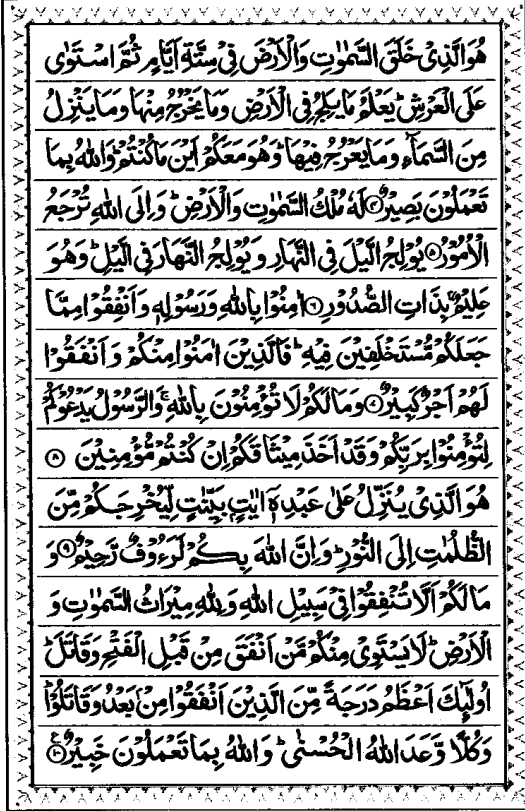 هُوَ الَّذِیْ خَلَقَ السَّمٰوٰتِ وَالْاَرْضَ فِیْ سِتَّةِ اَیَّامٍ ثُمَّ اسْتَوٰی
عَلَی الْعَرْشِ ؕ یَعْلَمُ مَا یَلِجُ فِی الْاَرْضِ وَمَا یَخْرُجُ مِنْهَا وَمَا یَنْزِلُ
مِنَ السَّمَآءِ وَمَا یَعْرُجُ فِیْهَا ؕ وَهُوَ مَعَكُمْ اَیْنَ مَا كُنْتُمْ ؕ وَاللّٰهُ بِمَا
تَعْمَلُوْنَ بَصِیْرٌ ۴ لَهٗ مُلْكُ السَّمٰوٰتِ وَالْاَرْضِ ؕ وَاِلَی اللّٰهِ تُرْجَعُ
الْاُمُوْرُ ۵ یُوْلِجُ الَّیْلَ فِی النَّهَارِ وَیُوْلِجُ النَّهَارَ فِی الَّیْلِ ؕ وَهُوَ
عَلِیْمٌۢ بِذَاتِ الصُّدُوْرِ ۶ اٰمِنُوْا بِاللّٰهِ وَرَسُوْلِهٖ وَاَنْفِقُوْا مِمَّا
جَعَلَكُمْ مُّسْتَخْلَفِیْنَ فِیْهِ ؕ فَالَّذِیْنَ اٰمَنُوْا مِنْكُمْ وَاَنْفَقُوْا
لَهُمْ اَجْرٌ كَبِیْرٌ ۷ وَمَا لَكُمْ لَا تُؤْمِنُوْنَ بِاللّٰهِ ۚ وَالرَّسُوْلُ یَدْعُوْكُمْ
لِتُؤْمِنُوْا بِرَبِّكُمْ وَقَدْ اَخَذَ مِیْثَاقَكُمْ اِنْ كُنْتُمْ مُّؤْمِنِیْنَ ۸
هُوَ الَّذِیْ یُنَزِّلُ عَلٰی عَبْدِهٖۤ اٰیٰتٍۭ بَیِّنٰتٍ لِّیُخْرِجَكُمْ مِّنَ
الظُّلُمٰتِ اِلَی النُّوْرِ ؕ وَاِنَّ اللّٰهَ بِكُمْ لَرَءُوْفٌ رَّحِیْمٌ ۹ وَ
مَا لَكُمْ اَلَّا تُنْفِقُوْا فِیْ سَبِیْلِ اللّٰهِ وَلِلّٰهِ مِیْرَاثُ السَّمٰوٰتِ وَ
الْاَرْضِ ؕ لَا یَسْتَوِیْ مِنْكُمْ مَّنْ اَنْفَقَ مِنْ قَبْلِ الْفَتْحِ وَقَاتَلَ ؕ
اُولٰٓئِكَ اَعْظَمُ دَرَجَةً مِّنَ الَّذِیْنَ اَنْفَقُوْا مِنْۢ بَعْدُ وَقَاتَلُوْا ؕ
وَكُلًّا وَّعَدَ اللّٰهُ الْحُسْنٰی ؕ وَاللّٰهُ بِمَا تَعْمَلُوْنَ خَبِیْرٌ ۱۰